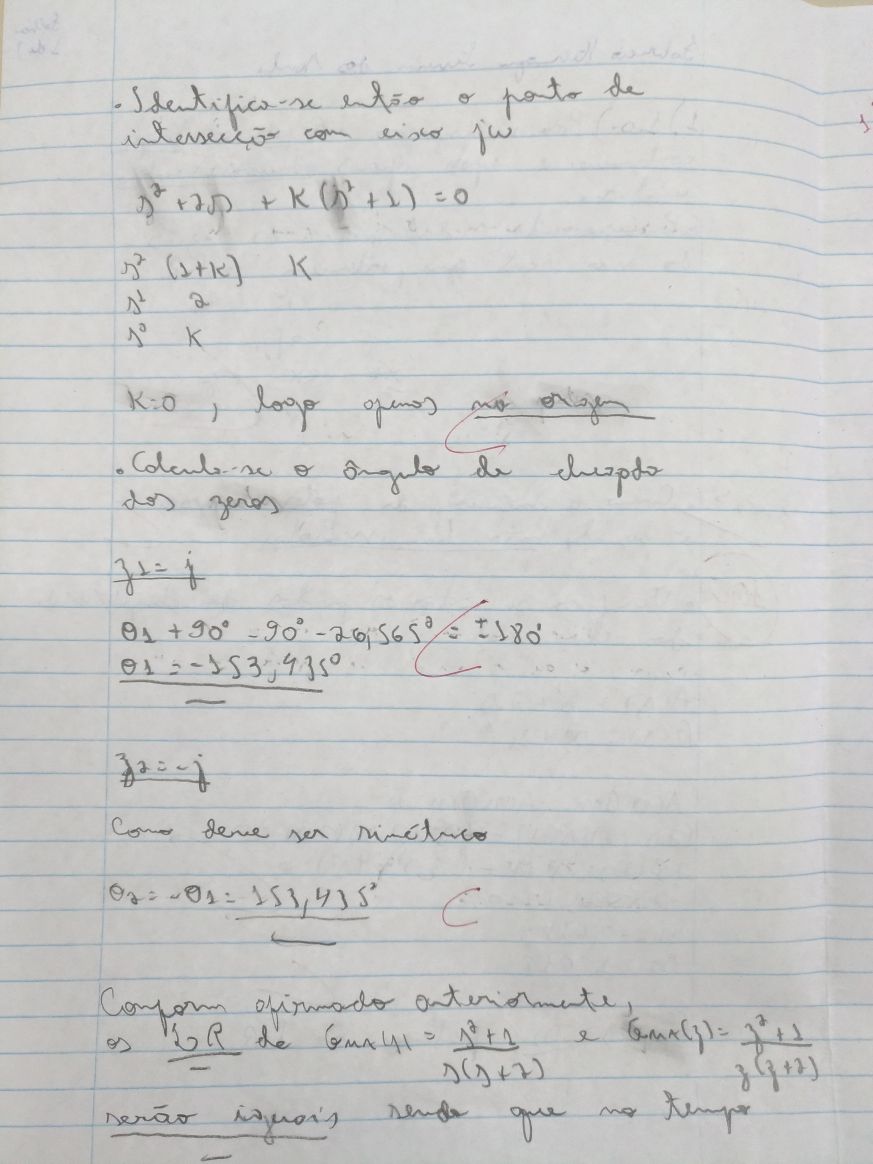 . Identifica-se então o ponto de
intersecção com eixo jω
s² + 2s + K(s² + 1) = 0
s² (1+K) K
s¹ 2
s⁰ K
K=0 , logo apenas na origem
. Calcula-se o ângulo de chegada
dos zeros
z1 = j
θ1 + 90° - 90° - 26,565° = ±180°
θ1 = -153,435°
z2 = -j
Como deve ser simétrico
θ2 = -θ1 = 153,435°
Conforme afirmado anteriormente,
os LGR de Gma(s) = s²+1 / s(s+2) e Gma(z) = z²+1 / z(z+2)
serão iguais sendo que no tempo